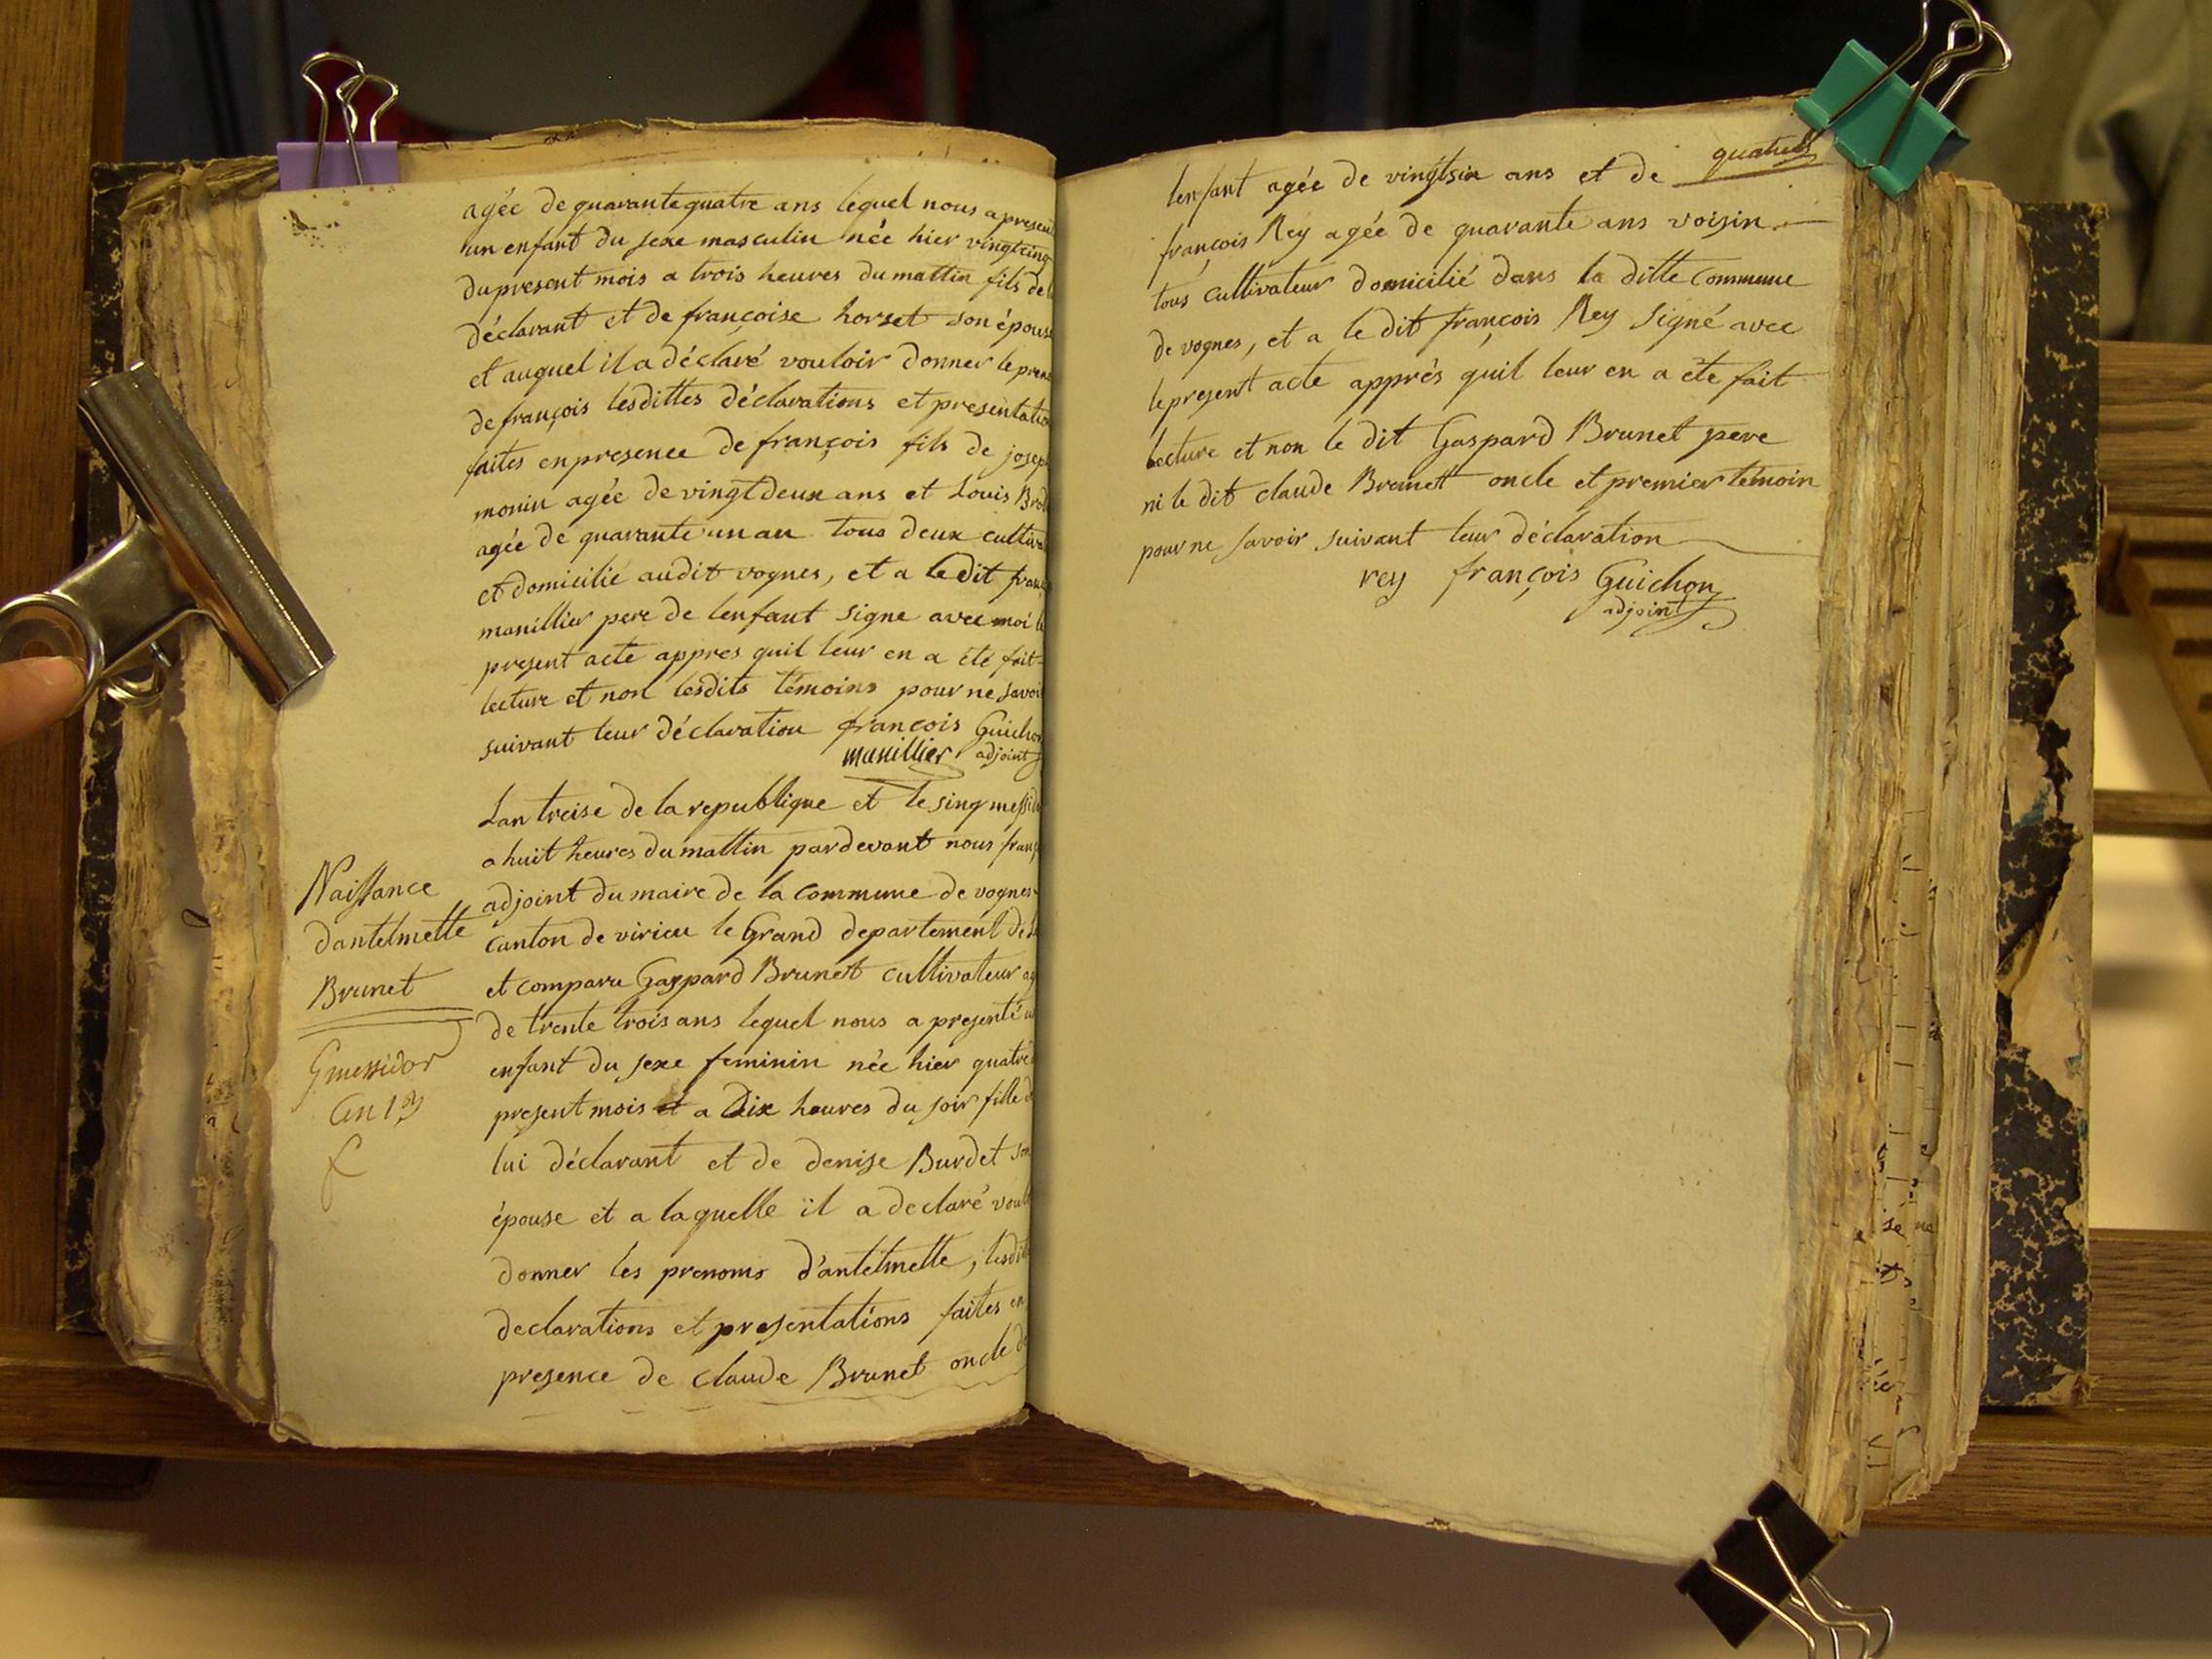 agée de quarante quatre ans lequel nous a presen
un enfant du sexe masculin née hier vingt cinq
du present mois a trois heures du mattin fils de
déclarant et de françoise horset son épouse
et auquel il a déclaré vouloir donner le pren
de françois lesdittes déclarations et presentatio
faites en presence de françois fils de josep
monin agée de vingt deux ans et Louis
agée de quarante un an tous deux cultiva
et domicilié audit vognes, et a le dit fran
manillier pere de lenfant signe avec moi le
present acte appres quil leur en a été fait
lecture et non lesdits témoins pour ne savoi
suivant leur déclaration françois Guichon
manillier adjoint
Lan treise de la republique et le sinq messid
a huit heures du mattin pardevant nous franç
adjoint du maire de la commune de vognes
canton de virieu le Grand departement de
et comparu Gaspard Brunett cultivateur ag
de trente trois ans lequel nous a presenté u
enfant du sexe feminin née hier quatre
present mois et a Dix heures du soir fille d
lui déclarant et de denise Burdet son
épouse et a laquelle il a declaré voul
donner les prenoms d'antelmette, lesdit
declarations et presentations faites en
presence de claude Brunet oncle d
Naissance
dantelmette
Brunet
messidor
an 13
f
quatre
lenfant agée de vingtsix ans et de
françois Rey agée de quarante ans voisin
tous cultivateur domicilié dans la ditte commune
de vognes, et a le dit françois Rey signé avec
le present acte apprés quil leur en a éte fait
lecture et non le dit Gaspard Brunet pere
ni le dit claude Brunett oncle et premier témoin
pour ne savoir suivant leur déclaration
rey françois Guichon
adjoint